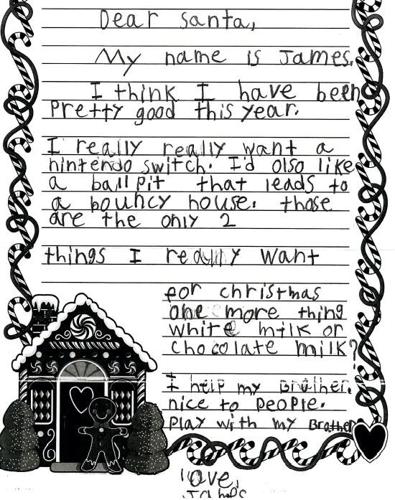 Dear Santa,
My name is James.
I think I have been
Pretty good this year.
I really really want a
nintendo switch. I'd olso like
a ball pit that leads to
a bouncy house. those
are the only 2
things I really want
for christmas
one more thing
white milk or
chocolate milk?
I help my Brother.
nice to people.
Play with my Brother
Love,
James